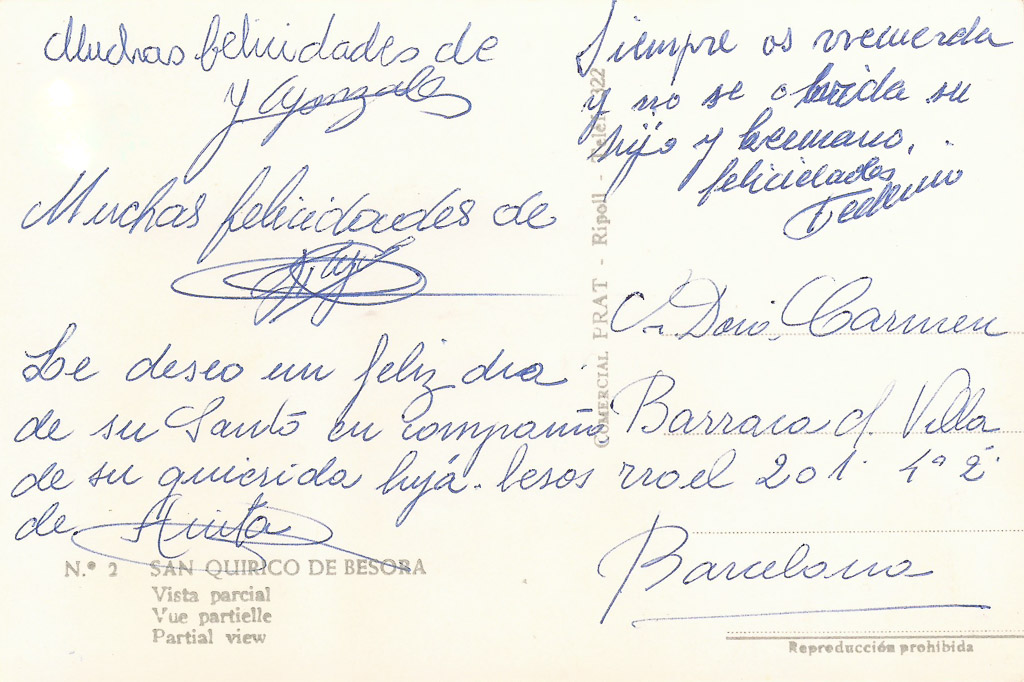 Muchas felicidades de
y Gonzalo
Muchas felicidades de
Le deseo un feliz dia
de su Santo en compañia
de su querida hija. besos
de Anita
N.º 2 SAN QUIRICO DE BESORA
Vista parcial
Vue partielle
Partial view
COMERCIAL PRAT - Ripoll - Telef. 322
Siempre os rrecuerda
y no se olbida su
hijo y hermano,
felicidades
Federico
Sra Dña, Carmen
Barraca c/. Villa
rroel 201. 4º 2ª
Barcelona
Reproducción prohibida